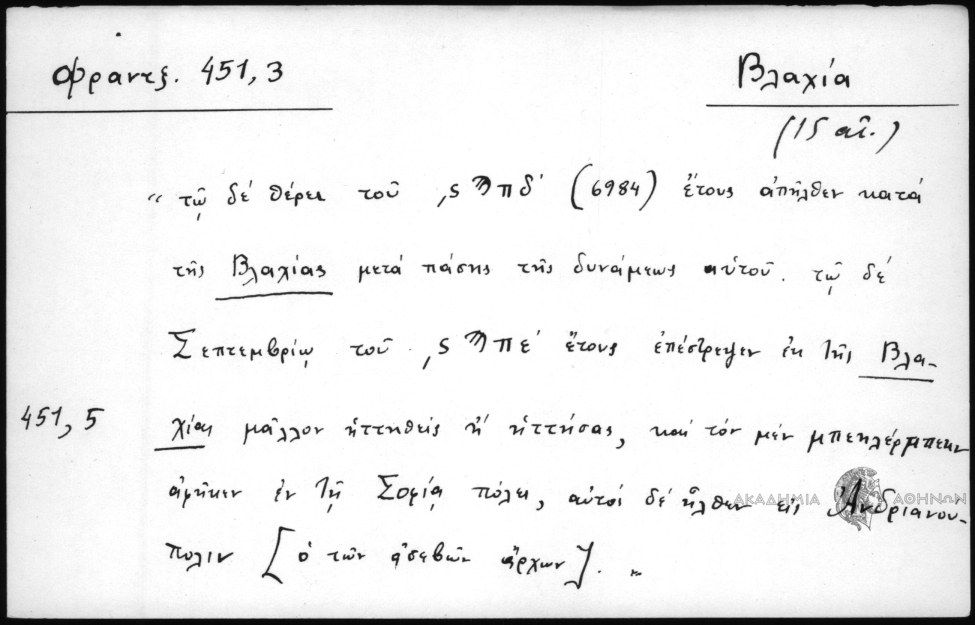 Φραντζ. 451, 3
Βλαχία
(15 αἰ.)
“ τῷ δέ θέρει τοῦ ͵ςϠπδ΄ (6984) ἔτους ἀπῆλθεν κατά
τῆς Βλαχίας μετά πάσης τῆς δυνάμεως αὐτοῦ. τῷ δέ
Σεπτεμβρίῳ τοῦ ͵ςϠπε΄ ἔτους ἐπέστρεψεν ἐκ τῆς Βλα-
451, 5
χίας μᾶλλον ἡττηθείς ἤ ἡττήσας, καί τόν μέν μπεκλέρμπεκην
ἀφῆκεν ἐν τῇ Σοφίᾳ πόλει, αὐτός δέ ἦλθεν εἰς Ἀνδριανού-
πολιν [ὁ τῶν ἀσεβῶν ἄρχων]. „
ΑΚΑΔΗΜΙΑ ΑΘΗΝΩΝ